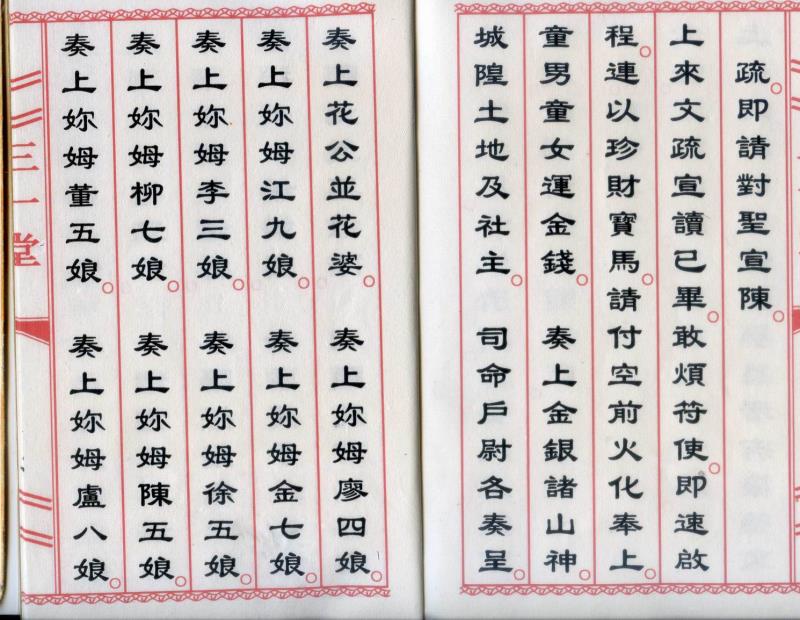 疏。即請對聖宣陳。
上來文疏宣讀已畢。敢煩符使。即速啟
程。連以珍財寶馬。請付空前火化奉上。
童男童女運金錢。 奏上金銀諸山神。
城隍土地及社主。 司命戶尉各奏呈。
奏上花公並花婆。 奏上妳姆廖四娘。
奏上妳姆江九娘。 奏上妳姆金七娘。
奏上妳姆李三娘。 奏上妳姆徐五娘。
奏上妳姆柳七娘。 奏上妳姆陳五娘。
奏上妳姆董五娘。 奏上妳姆盧八娘。
三一堂